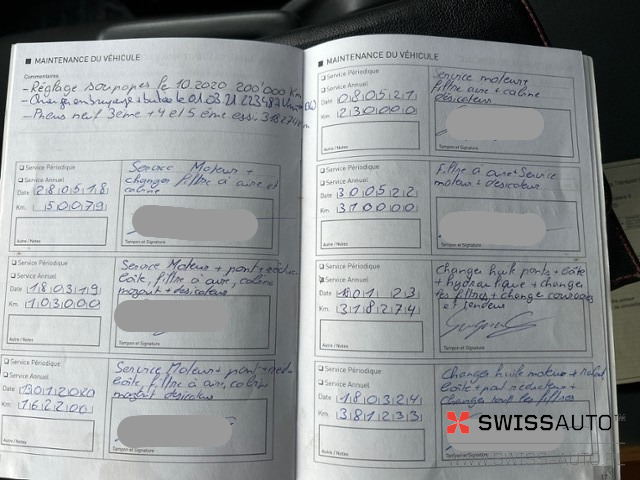 ■ MAINTENANCE DU VÉHICULE
Commentaires
- Réglage soupapes le 10.2020 200'000 Km
- Changer embrayage +
- Pneus neuf 3ème + 4 et 5 ème essi. 318274 Km
Service Périodique
Service Annuel
Date 28 05 18
Km. 50079
Autre / Notes
Service Moteur +
changer filtre à air et
cabine
Tampon et Signature
Service Périodique
Service Annuel
Date 18 03 19
Km. 103000
Autre / Notes
Service Moteur + pont + réduc
boîte, filtre à air, cabine
mazout + désicateur
Tampon et Signature
Service Périodique
Service Annuel
Date
Km. 162200
Autre / Notes
Service Moteur + pont + reduc
boîte, filtre à air, cabine
mazout désicateur
Tampon et Signature
■ MAINTENANCE DU VÉHICULE
Service Périodique
Service Annuel
Date 08 05 21
Km. 230000
Autre / Notes
Service moteur,
filtre air + cabine
désicateur
Tampon et Signature
Service Périodique
Service Annuel
Date 30 05 22
Km. 310000
Autre / Notes
Filtre à air + Service
moteur + désicateur
Tampon et Signature
Service Périodique
Service Annuel
Date
Km. 318274
Autre / Notes
Changer huile ponts + boîte
+ hydraulique + changer
les filtres + change courroies
et tendeur
Tampon et Signature
Service Périodique
Service Annuel
Date 18 03 24
Km. 381233
Autre / Notes
Changer huile moteur +
boîte + pont réducteur +
changer tous les filtres
SWISSAUTO™
www.swissauto